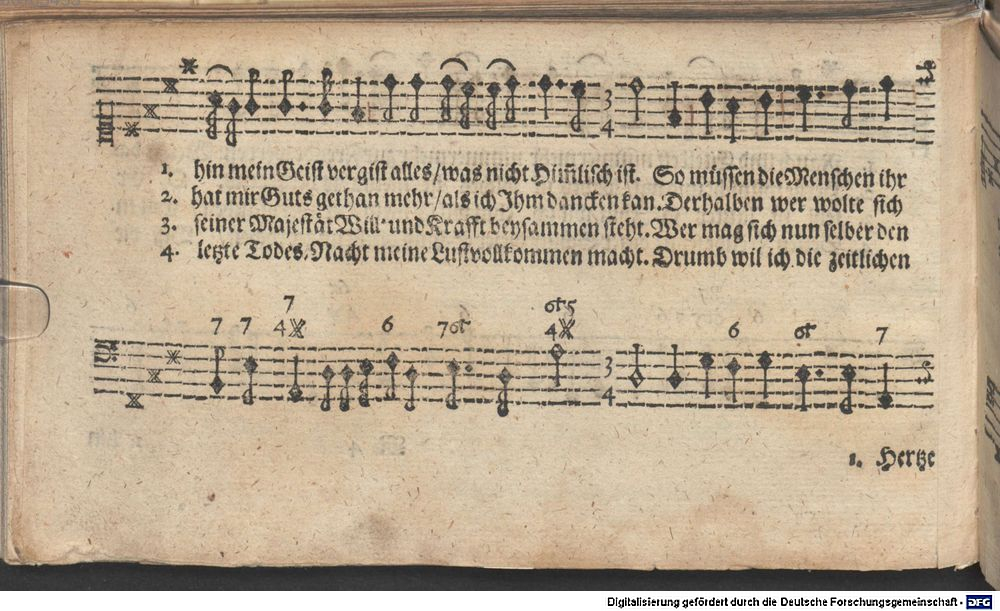 3
4
1. hin mein Geist vergist alles/was nicht Him̃lisch ist. So müssen die Menschen ihr
2. hat mir Guts gethan mehr/als ich Ihm dancken kan. Derhalben wer wolte sich
3. seiner Majestät Will' und Krafft beysammen steht. Wer mag sich nun selber den
4. letzte Todes-Nacht meine Lust vollkommen macht. Drumb wil ich die zeitlichen
7 6 5
7 7 4 6 7 6 4 6 6 7
3
4
1. Hertze
Digitalisierung gefördert durch die Deutsche Forschungsgemeinschaft - DFG